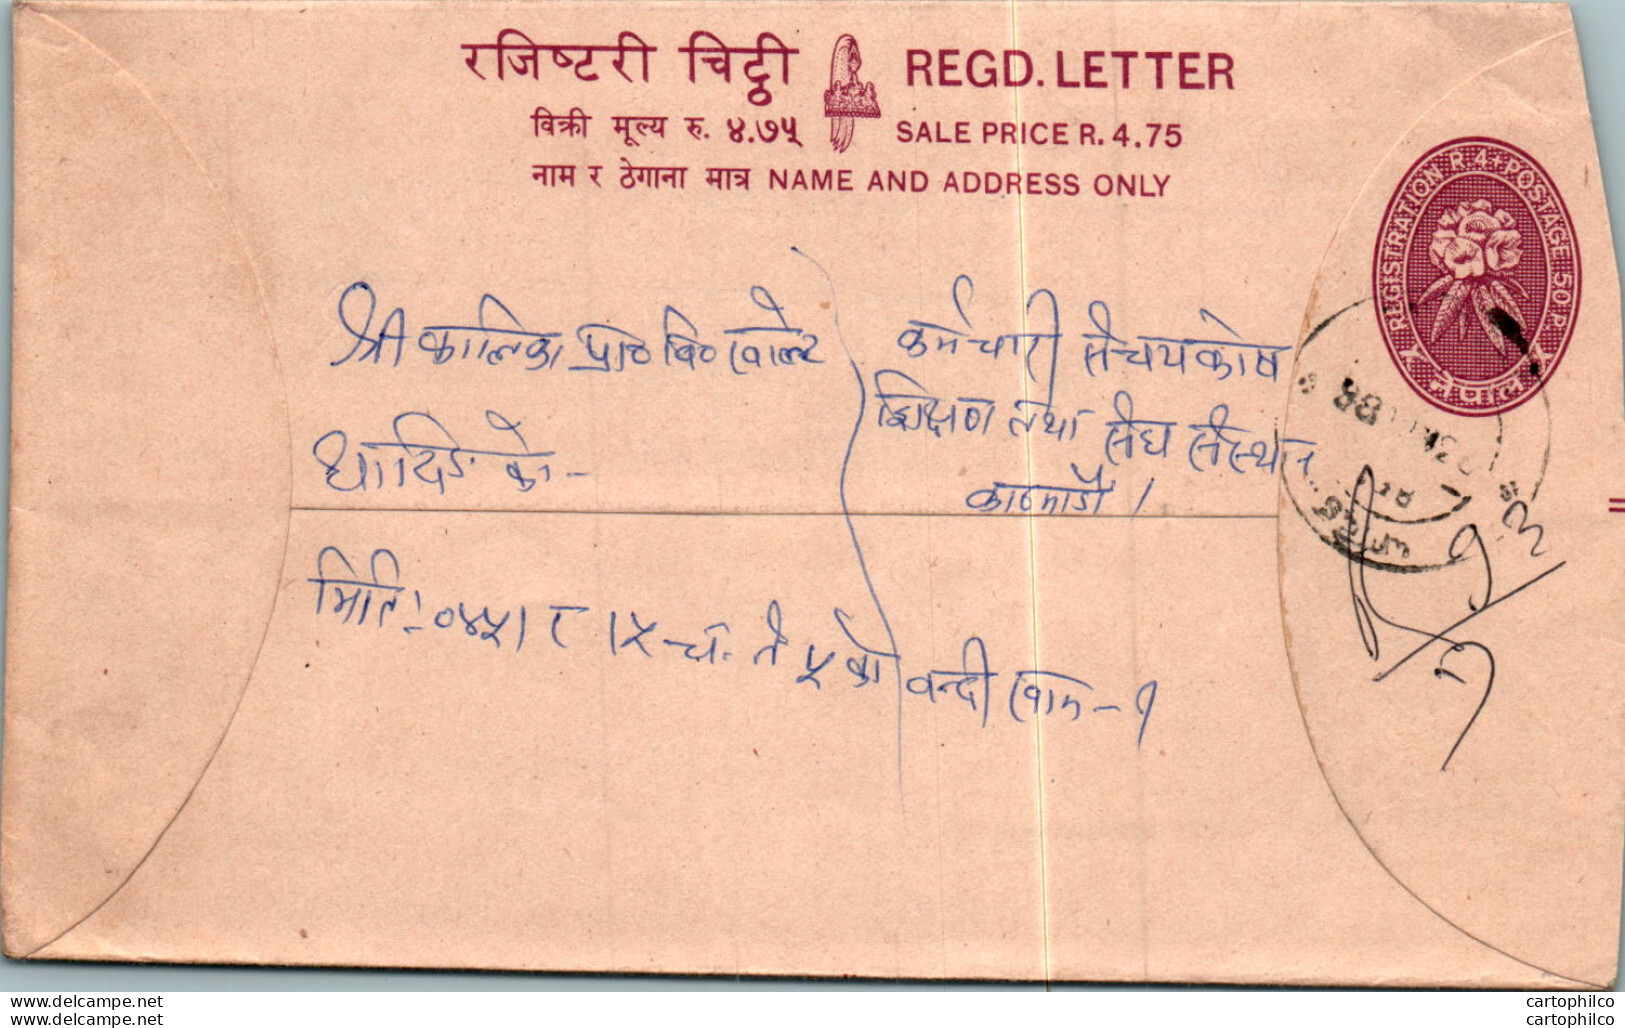 रजिष्टरी चिट्ठी REGD. LETTER
विक्री मूल्य रु. ४.७५ SALE PRICE R. 4.75
नाम र ठेगाना मात्र NAME AND ADDRESS ONLY
REGISTRATION R. 4 + POSTAGE 50 P.
नेपाल
श्री कालिका प्रा० वि०
धादिङ को -
कर्मचारी संचयकोष
शिक्षण तथा संघ संस्थान
काठमाडौं ।
मिति:- ०४५।८।५
delcampe.net
cartophilco
delcampe.net
cartophilco